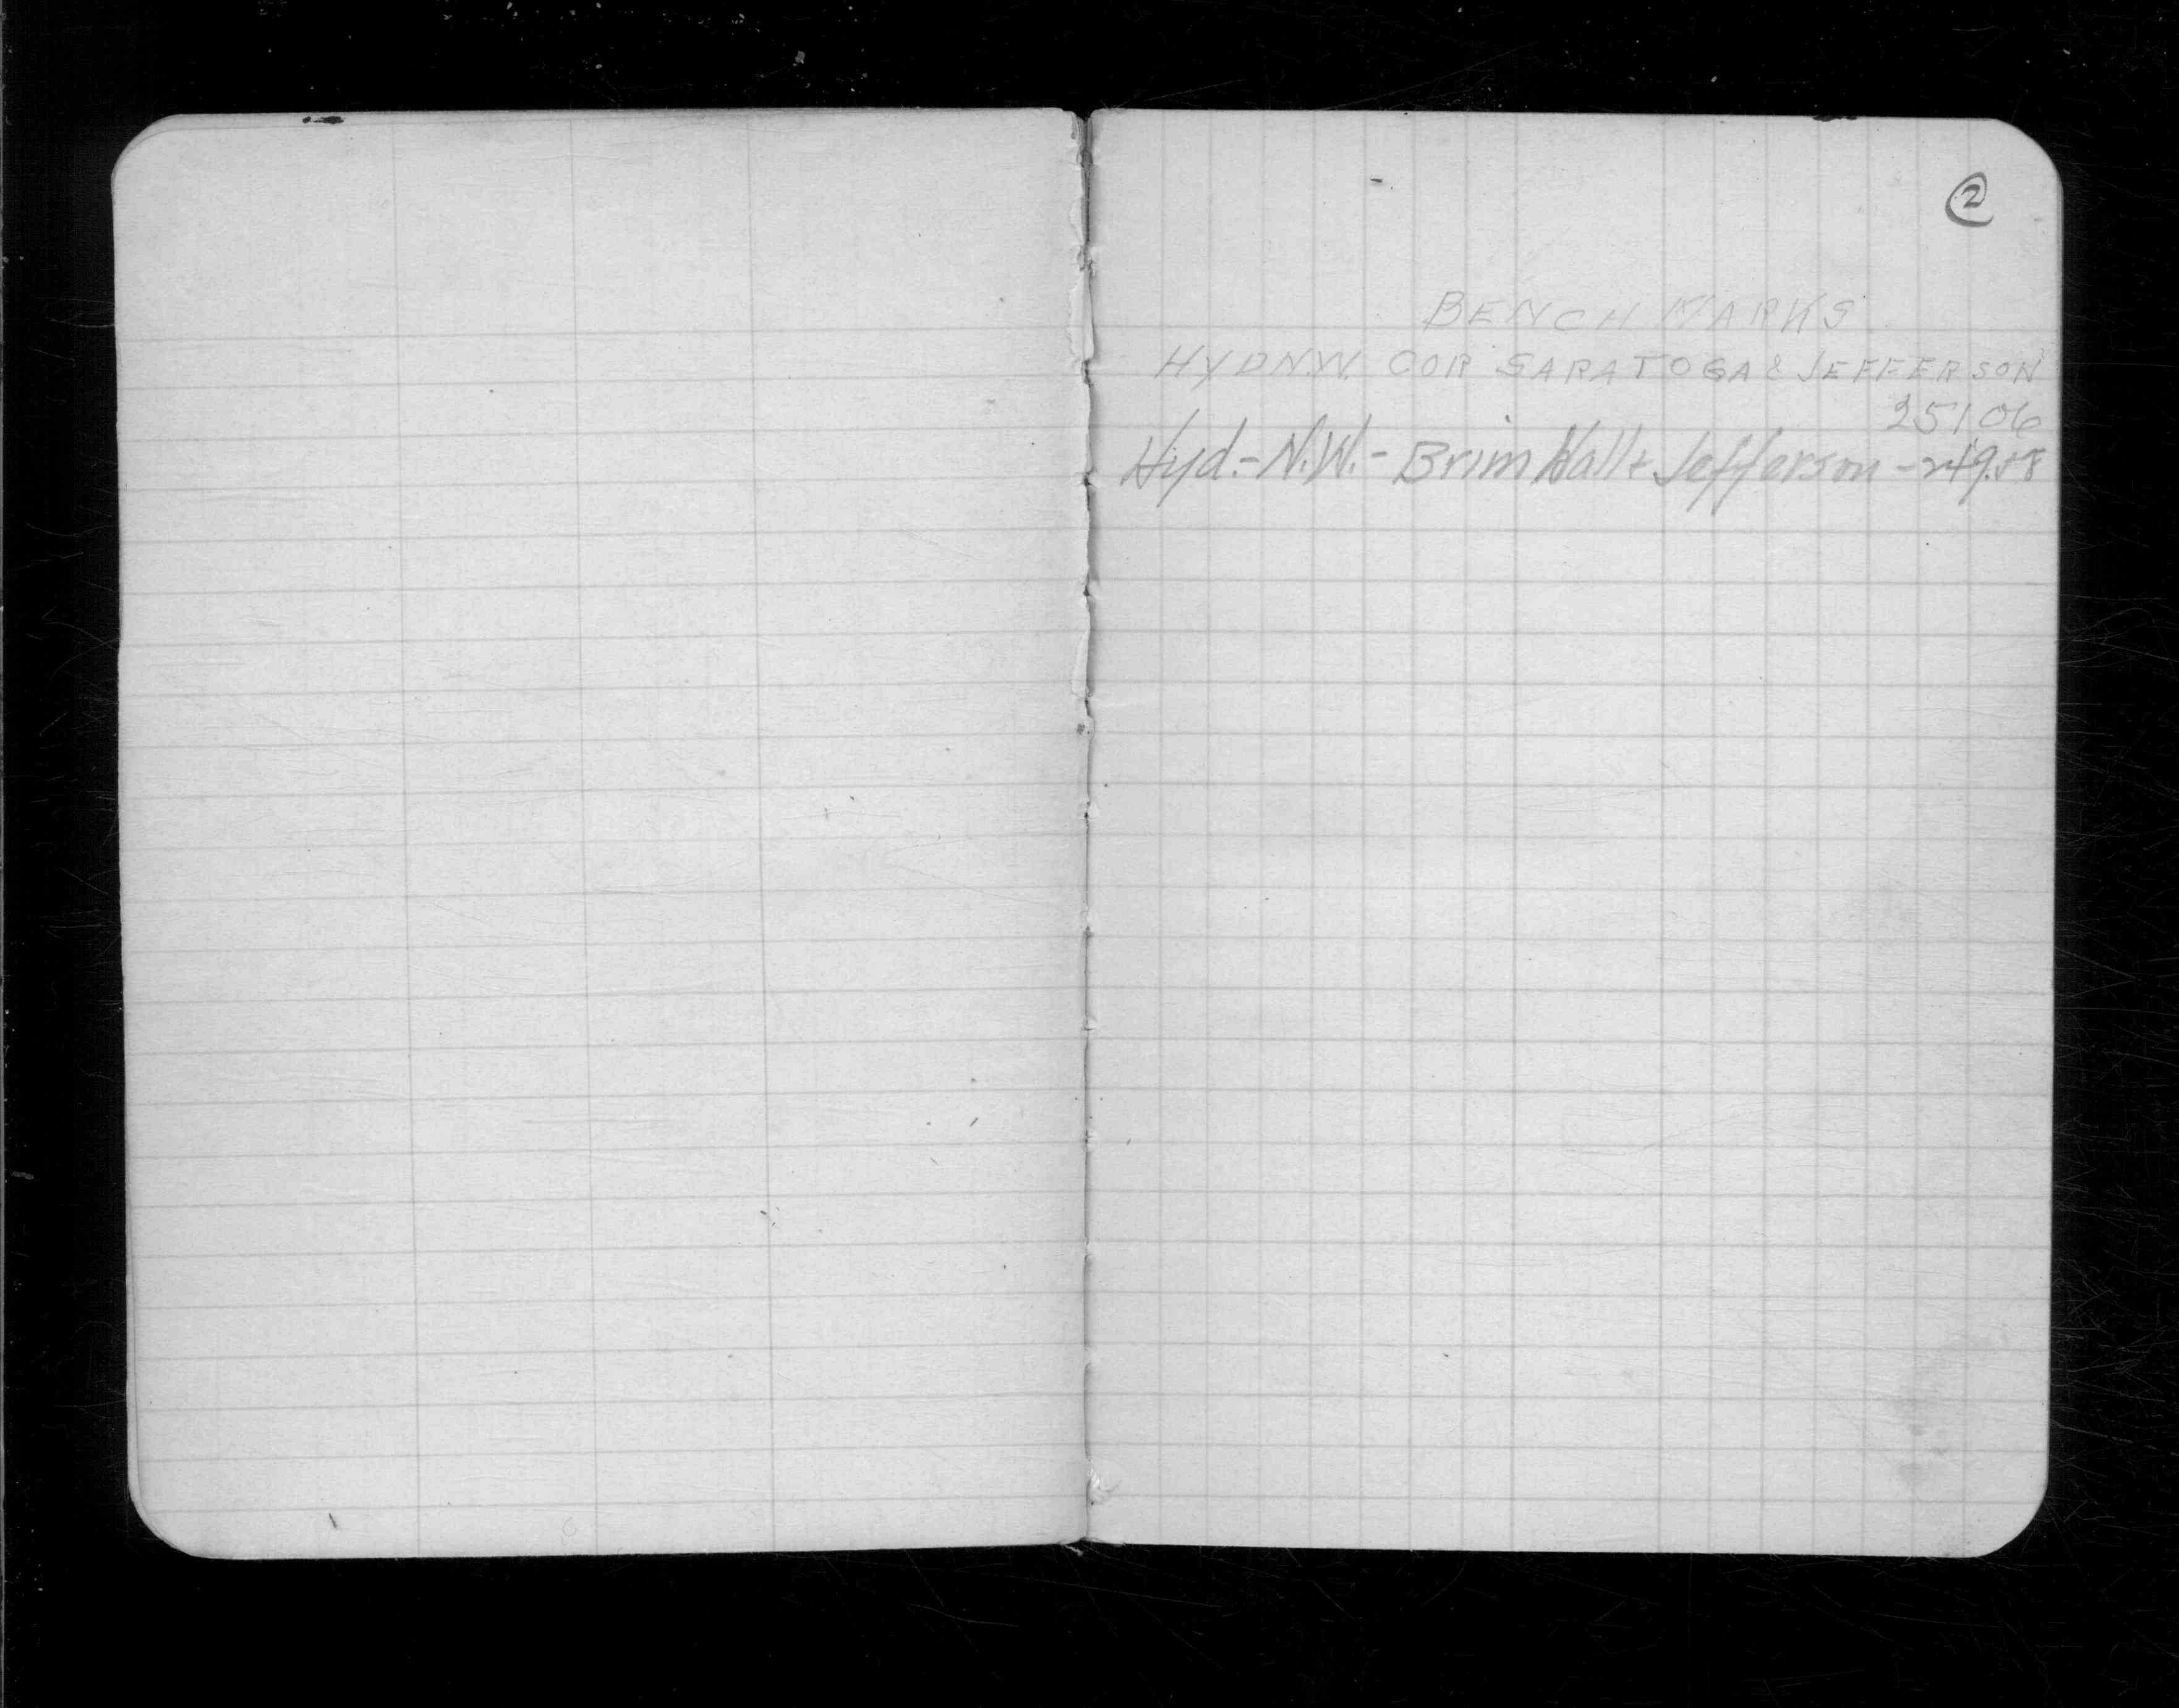 2
BENCH MARKS
HYD N.W. COR SARATOGA & JEFFERSON
251 06
Hyd.- N.W.- Brim Hall & Jefferson -